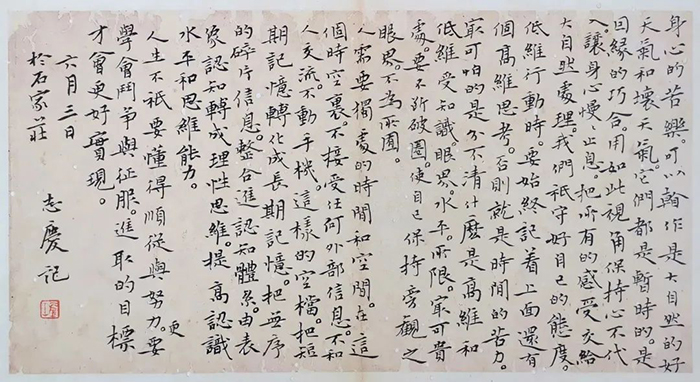 身心的苦樂。可以翰作是大自然的好
天氣和壞天氣。它們都是暫時的。是
因緣的巧合。用如此視角保持心不代
入。讓身心慢慢止息。把所有的感受交給
大自然處理。我們祇守好自己的態度。
低維行動時。要始終記着上面還有
個高維思考。否則就是時間的苦力。
寂可怕的是分不清什麽是高維和
低維受知識。眼界。水平。所限。寂可貴
處。要不斷破圈。使自己保持旁觀之
眼界。不為所囿。
人需要獨處的時間和空間。在這
個時空裏不接受任何外部信息。不和
人交流。不動手機。這樣的空檔把短
期記憶轉化成長期記憶。把無序
的碎片信息。整合進認知體系。由表
象認知轉成理性思維。提高認識
水平和思維能力。
人生不祇要懂得順從與努力。更要
學會鬥爭與征服。進取的目標
才會更好實現。
六月三日
於石家莊
志慶記